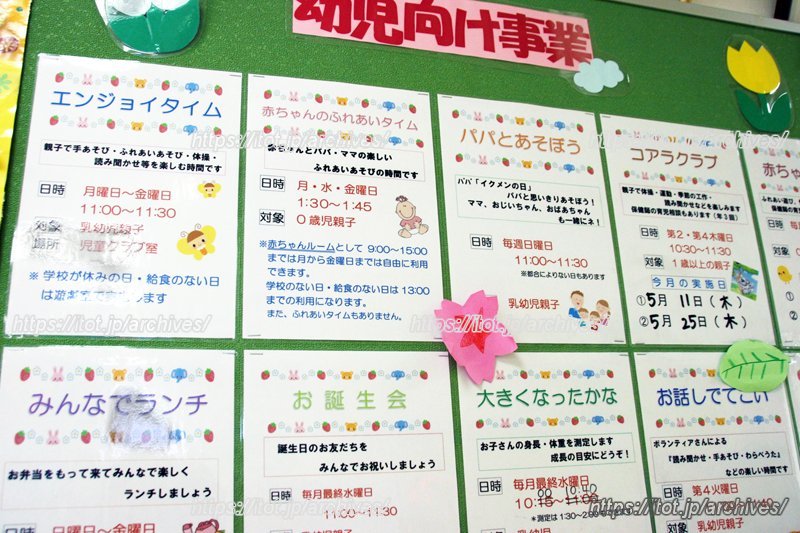 幼児向け事業
エンジョイタイム
親子で手あそび・ふれあいあそび・体操・
読み聞かせ等を楽しむ時間です
日時 月曜日～金曜日
11:00～11:30
対象 乳幼児親子
場所 児童クラブ室
※学校が休みの日・給食のない日
は遊戯室で
します
赤ちゃんのふれあいタイム
赤ちゃんとパパ・ママの楽しい
ふれあいの時間です
日時 月・水・金曜日
1:30～1:45
対象 0歳児親子
※赤ちゃんルームとして 9:00～15:00
までは月から金曜日までは自由に利用
できます。
学校のない日・給食のない日は 13:00
までの利用になります。
また、ふれあいタイムもありません。
パパとあそぼう
パパ「イクメンの日」
パパと思いきりあそぼう！
ママ、おじいちゃん、おばあちゃん
も一緒にネ！
日時 毎週日曜日
11:00～11:30
※都合によりない日もあります
乳幼児親子
コアラクラブ
親子で体操・運動・季節の工作・
読み聞かせなどを楽しみます
保健師の育児相談もあります（年3回）
日時 第2・第4木曜日
10:30～11:30
対象 1歳以上の親子
今月の実施日
①5月 11日（木）
②5月 25日（木）
赤ち
日時
対象
みんなでランチ
お弁当をもって来てみんなで楽しく
ランチしましょう
日時 日曜日～金曜日
お誕生会
誕生日のお友だちを
みんなでお祝いしましょう
日時 毎月最終水曜日
11:00～11:30
大きくなったかな
お子さんの身長・体重を測定します
成長の目安にどうぞ！
日時 毎月最終水曜日
00 10:40
10:15～11:05
※測定は1:30～
対象 乳幼児親子
お話しでてこい
ボランティアさんによる
『読み聞かせ・手あそび・わらべうた』
などの楽しい時間です
日時 第4火曜日
対象 乳幼児親子
https://itot.jp/archives/
https://itot.jp/archives/
https://itot.jp/archives/
https://itot.jp/archives/
https://itot.jp/archives/
https://itot.jp/archives/